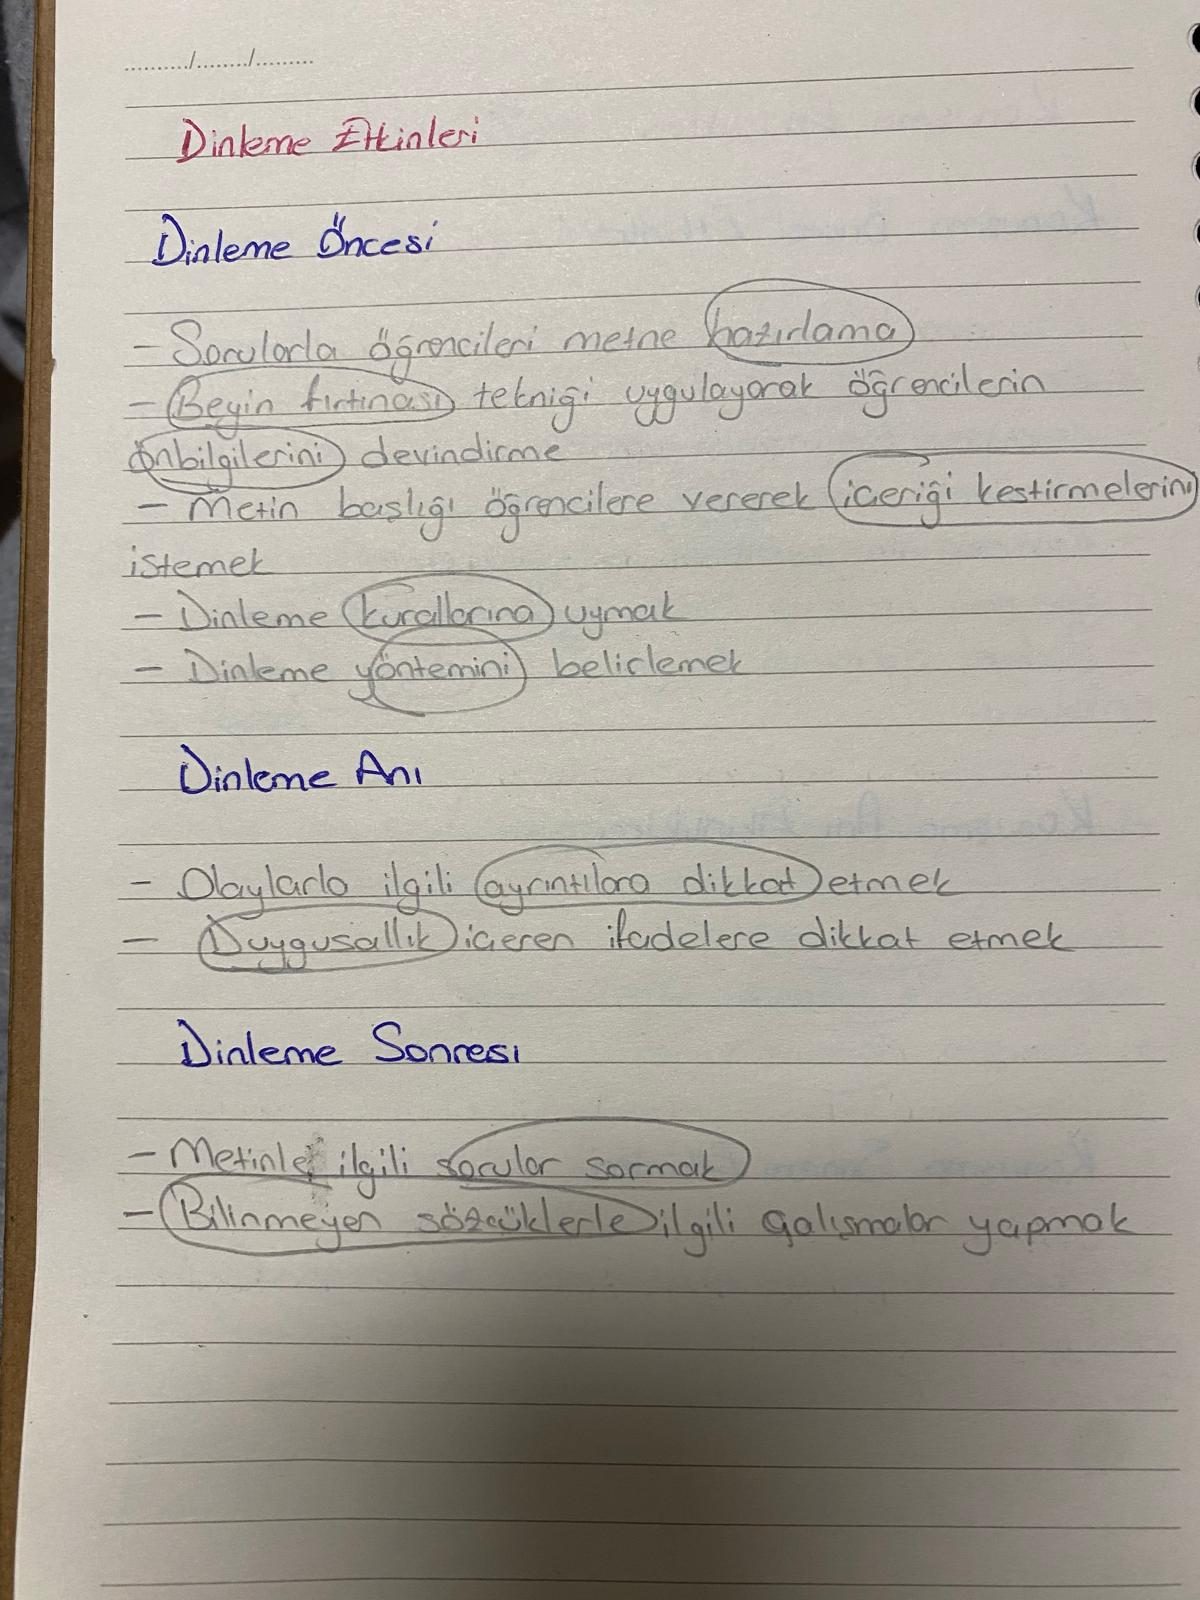 ........../......../.........
Dinleme Etkinleri
Dinleme Öncesi
- Sorularla öğrencileri metne hazırlama
- Beyin fırtınası tekniği uygulayarak öğrencilerin
önbilgilerini devindirme
- Metin başlığı öğrencilere vererek içeriği kestirmelerini
istemek
- Dinleme kurallarına uymak
- Dinleme yöntemini belirlemek
Dinleme Anı
- Olaylarla ilgili ayrıntılara dikkat etmek
- Duygusallık içeren ifadelere dikkat etmek
Dinleme Sonrası
- Metinle ilgili sorular sormak
- Bilinmeyen sözcüklerle ilgili çalışmalar yapmak